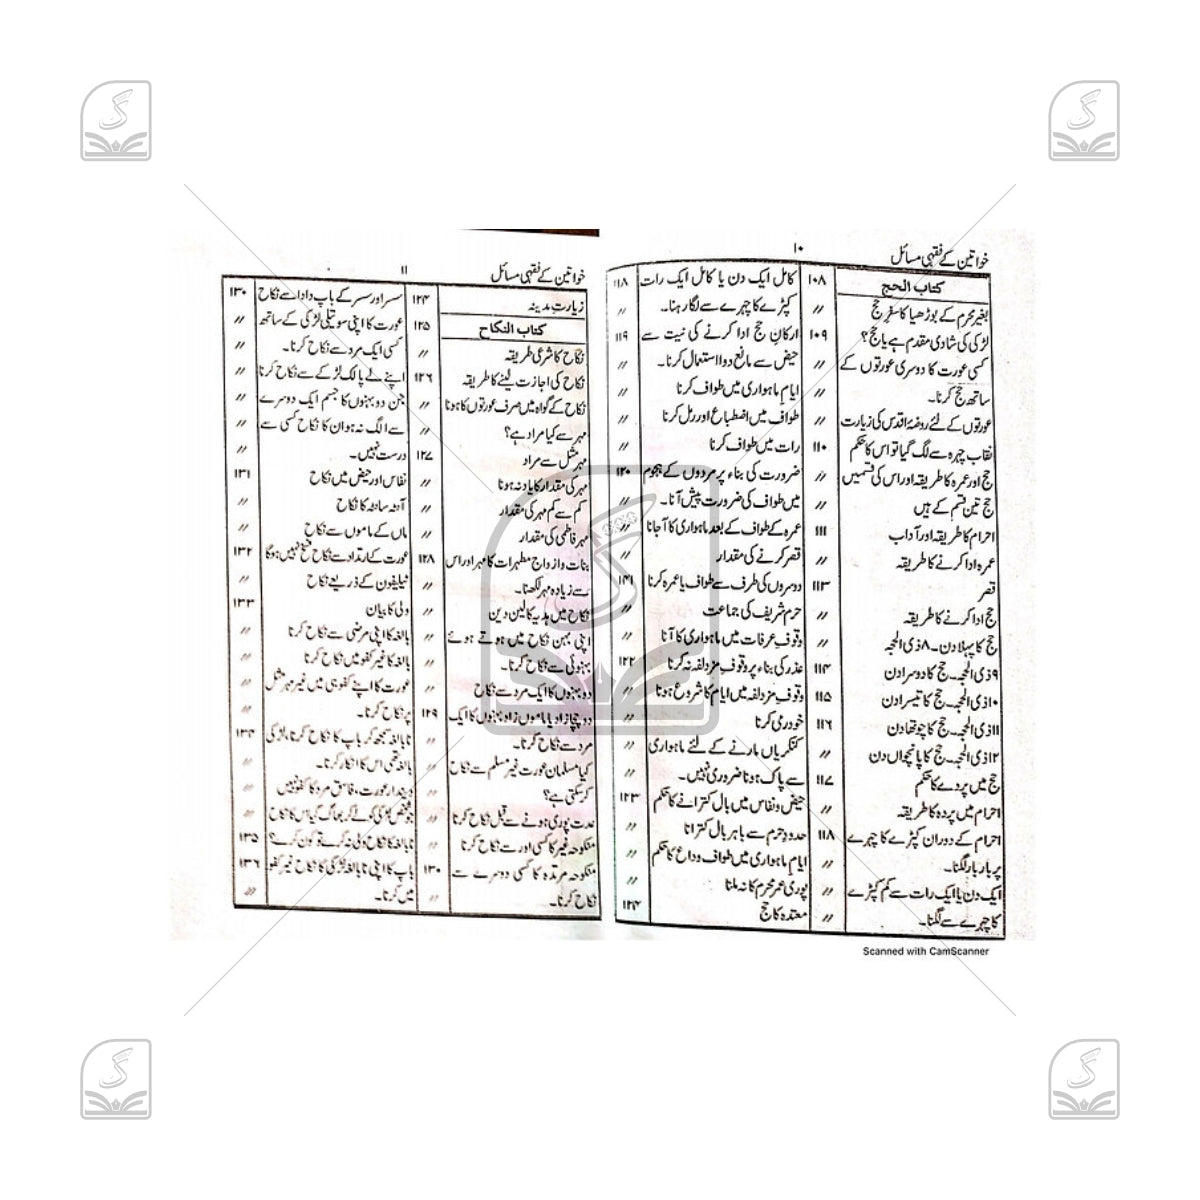 ۱۰
خواتین کے فقہی مسائل
کتاب الحج
۱۰۸
بغیر محرم کے بوڑھیا کا سفرِ حج
〃
لڑکی کی شادی مقدم ہے یا حج؟
۱۰۹
کسی عورت کا دوسری عورتوں کے
〃
ساتھ حج کرنا۔
〃
عورتوں کے لئے روضۂ اقدس کی زیارت
〃
نقاب چہرہ سے لگ گیا تو اس کا حکم
۱۱۰
حج اور عمرہ کا طریقہ اور اس کی قسمیں
〃
حج تین قسم کے ہیں
〃
احرام کا طریقہ اور آداب
۱۱۱
عمرہ ادا کرنے کا طریقہ
〃
قصر
۱۱۳
حج ادا کرنے کا طریقہ
〃
حج کا پہلا دن۔ ۸ ذی الحجہ
〃
۹ ذی الحجہ۔ حج کا دوسرا دن
۱۱۴
۱۰ ذی الحجہ۔ حج کا تیسرا دن
۱۱۵
۱۱ ذی الحجہ۔ حج کا چوتھا دن
۱۱۶
۱۲ ذی الحجہ۔ حج کا پانچواں دن
〃
حج میں پردے کا حکم
۱۱۷
احرام میں پردہ کا طریقہ
〃
احرام کے دوران کپڑے کا چہرے
۱۱۸
پر بار بار لگنا۔
〃
ایک دن یا ایک رات سے کم کپڑے
〃
کا چہرے سے لگنا۔
〃
کامل ایک دن یا کامل ایک رات
۱۱۸
کپڑے کا چہرے سے لگا رہنا۔
〃
ارکانِ حج ادا کرنے کی نیت سے
۱۱۹
حیض سے مانع دوا استعمال کرنا۔
〃
ایامِ ماہواری میں طواف کرنا
〃
طواف میں اضطباع اور رمل کرنا
〃
رات میں طواف کرنا
〃
ضرورت کی بناء پر مردوں کے ہجوم
۱۲۰
میں طواف کی ضرورت پیش آنا۔
〃
عمرہ کے طواف کے بعد ماہواری کا آجانا
〃
قصر کرنے کی مقدار
〃
دوسروں کی طرف سے طواف یا عمرہ کرنا
۱۲۱
حرم شریف کی جماعت
〃
وقوفِ عرفات میں ماہواری کا آنا
〃
عذر کی بناء پر وقوف مزدلفہ نہ کرنا
۱۲۲
وقوف مزدلفہ میں ایام کا شروع ہونا
〃
خود رمی کرنا
〃
کنکریاں مارنے کے لئے ماہواری
〃
سے پاک ہونا ضروری نہیں۔
〃
حیض و نفاس میں بال کترانے کا حکم
۱۲۳
حدودِ حرم سے باہر بال کترانا
〃
ایام ماہواری میں طواف وداع کا حکم
〃
پوری عمر محرم کا نہ ملنا
〃
معتدہ کا حج
۱۲۴
۱۱
خواتین کے فقہی مسائل
زیارتِ مدینہ
۱۲۴
کتاب النکاح
نکاح کا شرعی طریقہ
۱۲۵
نکاح کی اجازت لینے کا طریقہ
〃
نکاح کے گواہ میں صرف عورتوں کا ہونا
۱۲۶
مہر سے کیا مراد ہے؟
〃
مہر مثل سے مراد
〃
مہر کی مقدار کا یاد نہ ہونا
۱۲۷
کم سے کم مہر کی مقدار
〃
مہر فاطمی کی مقدار
〃
بنات و ازواج مطہرات کا مہر اور اس
۱۲۸
سے زیادہ مہر لکھنا۔
〃
نکاح میں ہدیہ کا لین دین
〃
اپنی بہن نکاح میں ہوتے ہوئے
〃
بہنوئی سے نکاح کرنا۔
〃
دو بہنوں کا ایک مرد سے نکاح
〃
دو چچازاد یا ماموں زاد بہنوں کا ایک
۱۲۹
مرد سے نکاح کرنا۔
〃
کیا مسلمان عورت غیر مسلم سے نکاح
〃
کر سکتی ہے؟
〃
عدت پوری ہونے سے قبل نکاح کرنا
〃
منکوحہ غیر کا کسی اور سے نکاح کرنا
〃
منکوحہ مرتدہ کا کسی دوسرے سے
۱۳۰
نکاح کرنا۔
〃
سسر اور سسر کے باپ دادا سے نکاح
۱۳۰
عورت کا اپنی سوتیلی لڑکی کے ساتھ
〃
کسی ایک مرد سے نکاح کرنا۔
〃
اپنے لے پالک لڑکے سے نکاح کرنا
〃
جن دو بہنوں کا جسم ایک دوسرے
〃
سے الگ نہ ہو ان کا نکاح کسی سے
〃
درست نہیں۔
〃
نفاس اور حیض میں نکاح
۱۳۱
آمنہ سامنہ کا نکاح
〃
ماں کے ماموں سے نکاح
〃
عورت کے ارتداد سے نکاح فسخ نہیں ہوگا
۱۳۲
ٹیلیفون کے ذریعے نکاح
〃
ولی کا بیان
۱۳۳
بالغہ کا اپنی مرضی سے نکاح کرنا
〃
بالغہ کا غیر کفو میں نکاح کرنا
〃
عورت کا اپنے کفو ہی میں غیر مہر مثل
〃
پر نکاح کرنا۔
〃
نابالغہ سمجھ کر باپ کا نکاح کرنا، لڑکی
۱۳۴
بالغہ تھی اس کا انکار کرنا۔
〃
دیندار عورت، فاسق مرد کا کفو نہیں
〃
جو شخص لڑکی کو لے کر بھاگ گیا اس کا نکاح
〃
نابالغہ کا نکاح ولی نہ کرے تو کون کرے؟
۱۳۵
باپ کا اپنی نابالغہ لڑکی کا نکاح غیر کفو
۱۳۶
میں کرنا۔
〃
Scanned with CamScanner